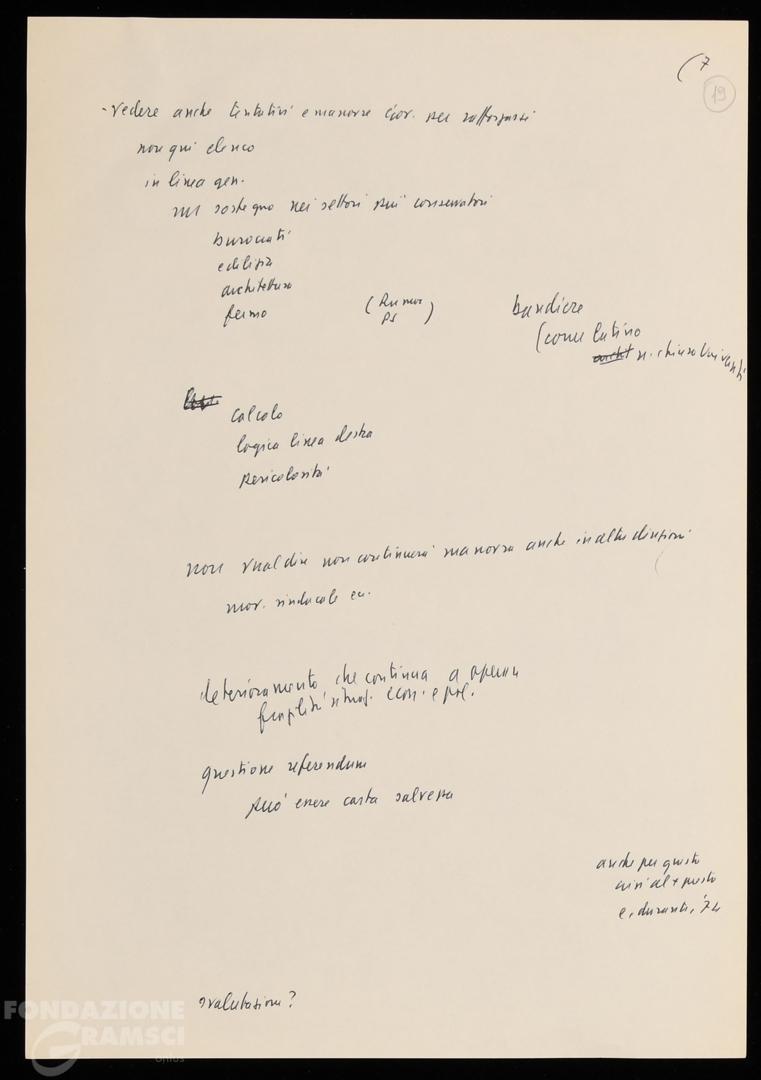 (7
19
- vedere anche tentativi e manovre Gov. per rafforzarsi
non qui elenco
in linea gen.
nel sostegno nei settori più conservatori
burocrati
edilizia
architettura
fermo
(Rumor
PS)
bandiere
(come latino
calcolo
logica linea destra
pericolosità
non vuol dire non continuerà manovra anche in altre direzioni
mov. sindacale ecc.
deterioramento che continua a operare
fragilità situaz. econ. e pol.
questione referendum
può essere carta salvezza
anche per questo
crisi al + presto
e, durante, '72
svalutazione?
FONDAZIONE
GRAMSCI
onlus